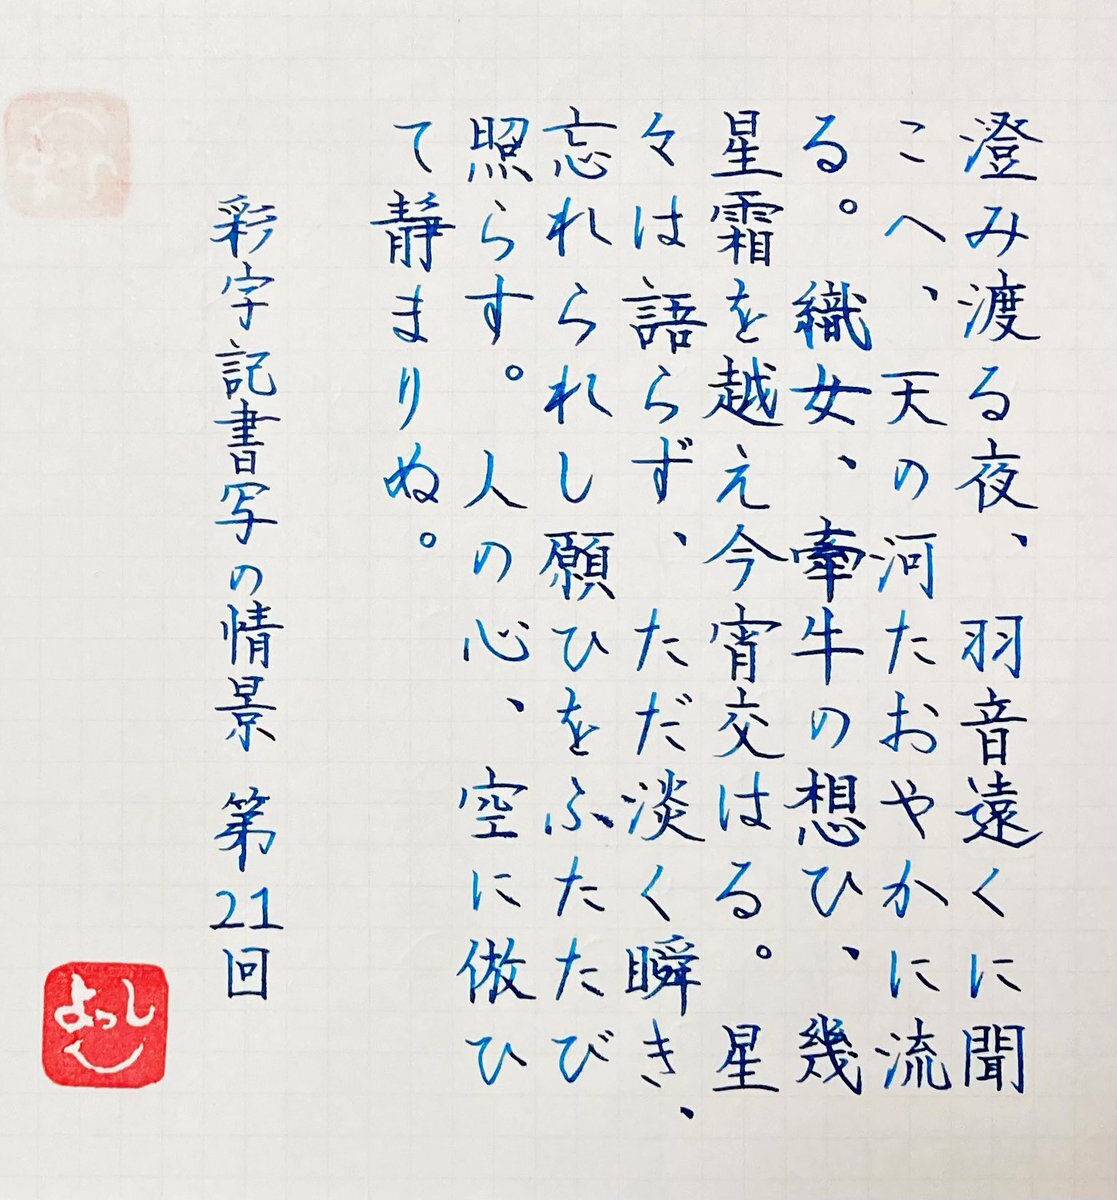 澄み渡る夜、羽音遠くに聞
こへ、天の河たおやかに流
る。織女、牽牛の想ひ、幾
星霜を越え今宵交はる。星
々は語らず、ただ淡く瞬き、
忘れられし願ひをふたたび
照らす。人の心、空に倣ひ
て静まりぬ。
彩字記書写の情景 第21回
よっし